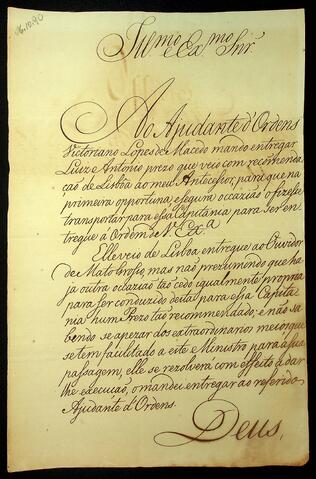 06.10.90
Ill.mo e Ex.mo Snr
Ao Ajudante d'Ordens
Victoriano Lopes de Macedo mando entregar
Luiz Antonio prezo que veio com recomenda
ção de Lisboa ao meu Antecessor, para que na
primeira opportuna, e segura occazião o fizesse
transportar para essa Capitania para ser en
tregue á Ordem de V. Ex.a
Elle veio de Lisboa entregue ao Ouvidor
de Mato Grosso, mas não prezumindo que ha
ja outra occazião tão cedo igualmente propria
para ser conduzido desta para essa Capita
nia hum Prezo tão recomendado, e não sa
bendo se apezar dos extraordinarios meios que
se tem facilitado a este Ministro para a sua
passagem, elle se rezolverá com effeito a dar
lhe execução, o mandei entregar ao referido
Ajudante d'Ordens.
Deus,